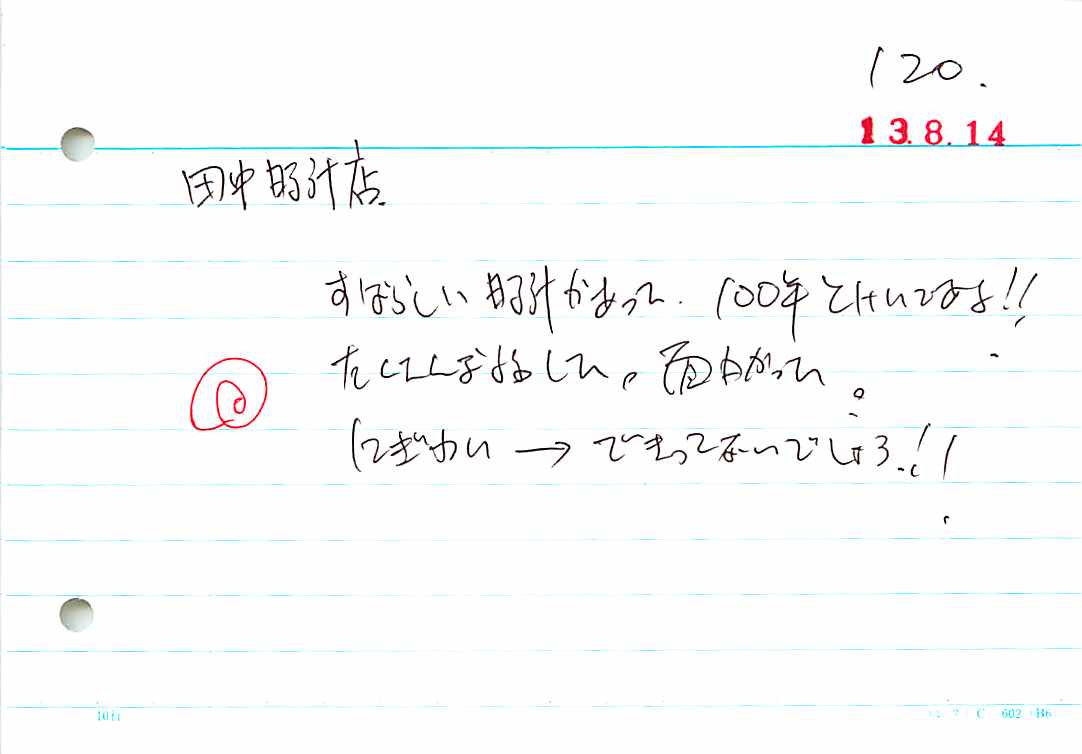 120.
13.8.14
田中時計店
すばらしい時計があって. 100年とけいですよ!!
たくさんお話して。面白かった。
にぎわい → できってないでしょう!!
C 602 B6